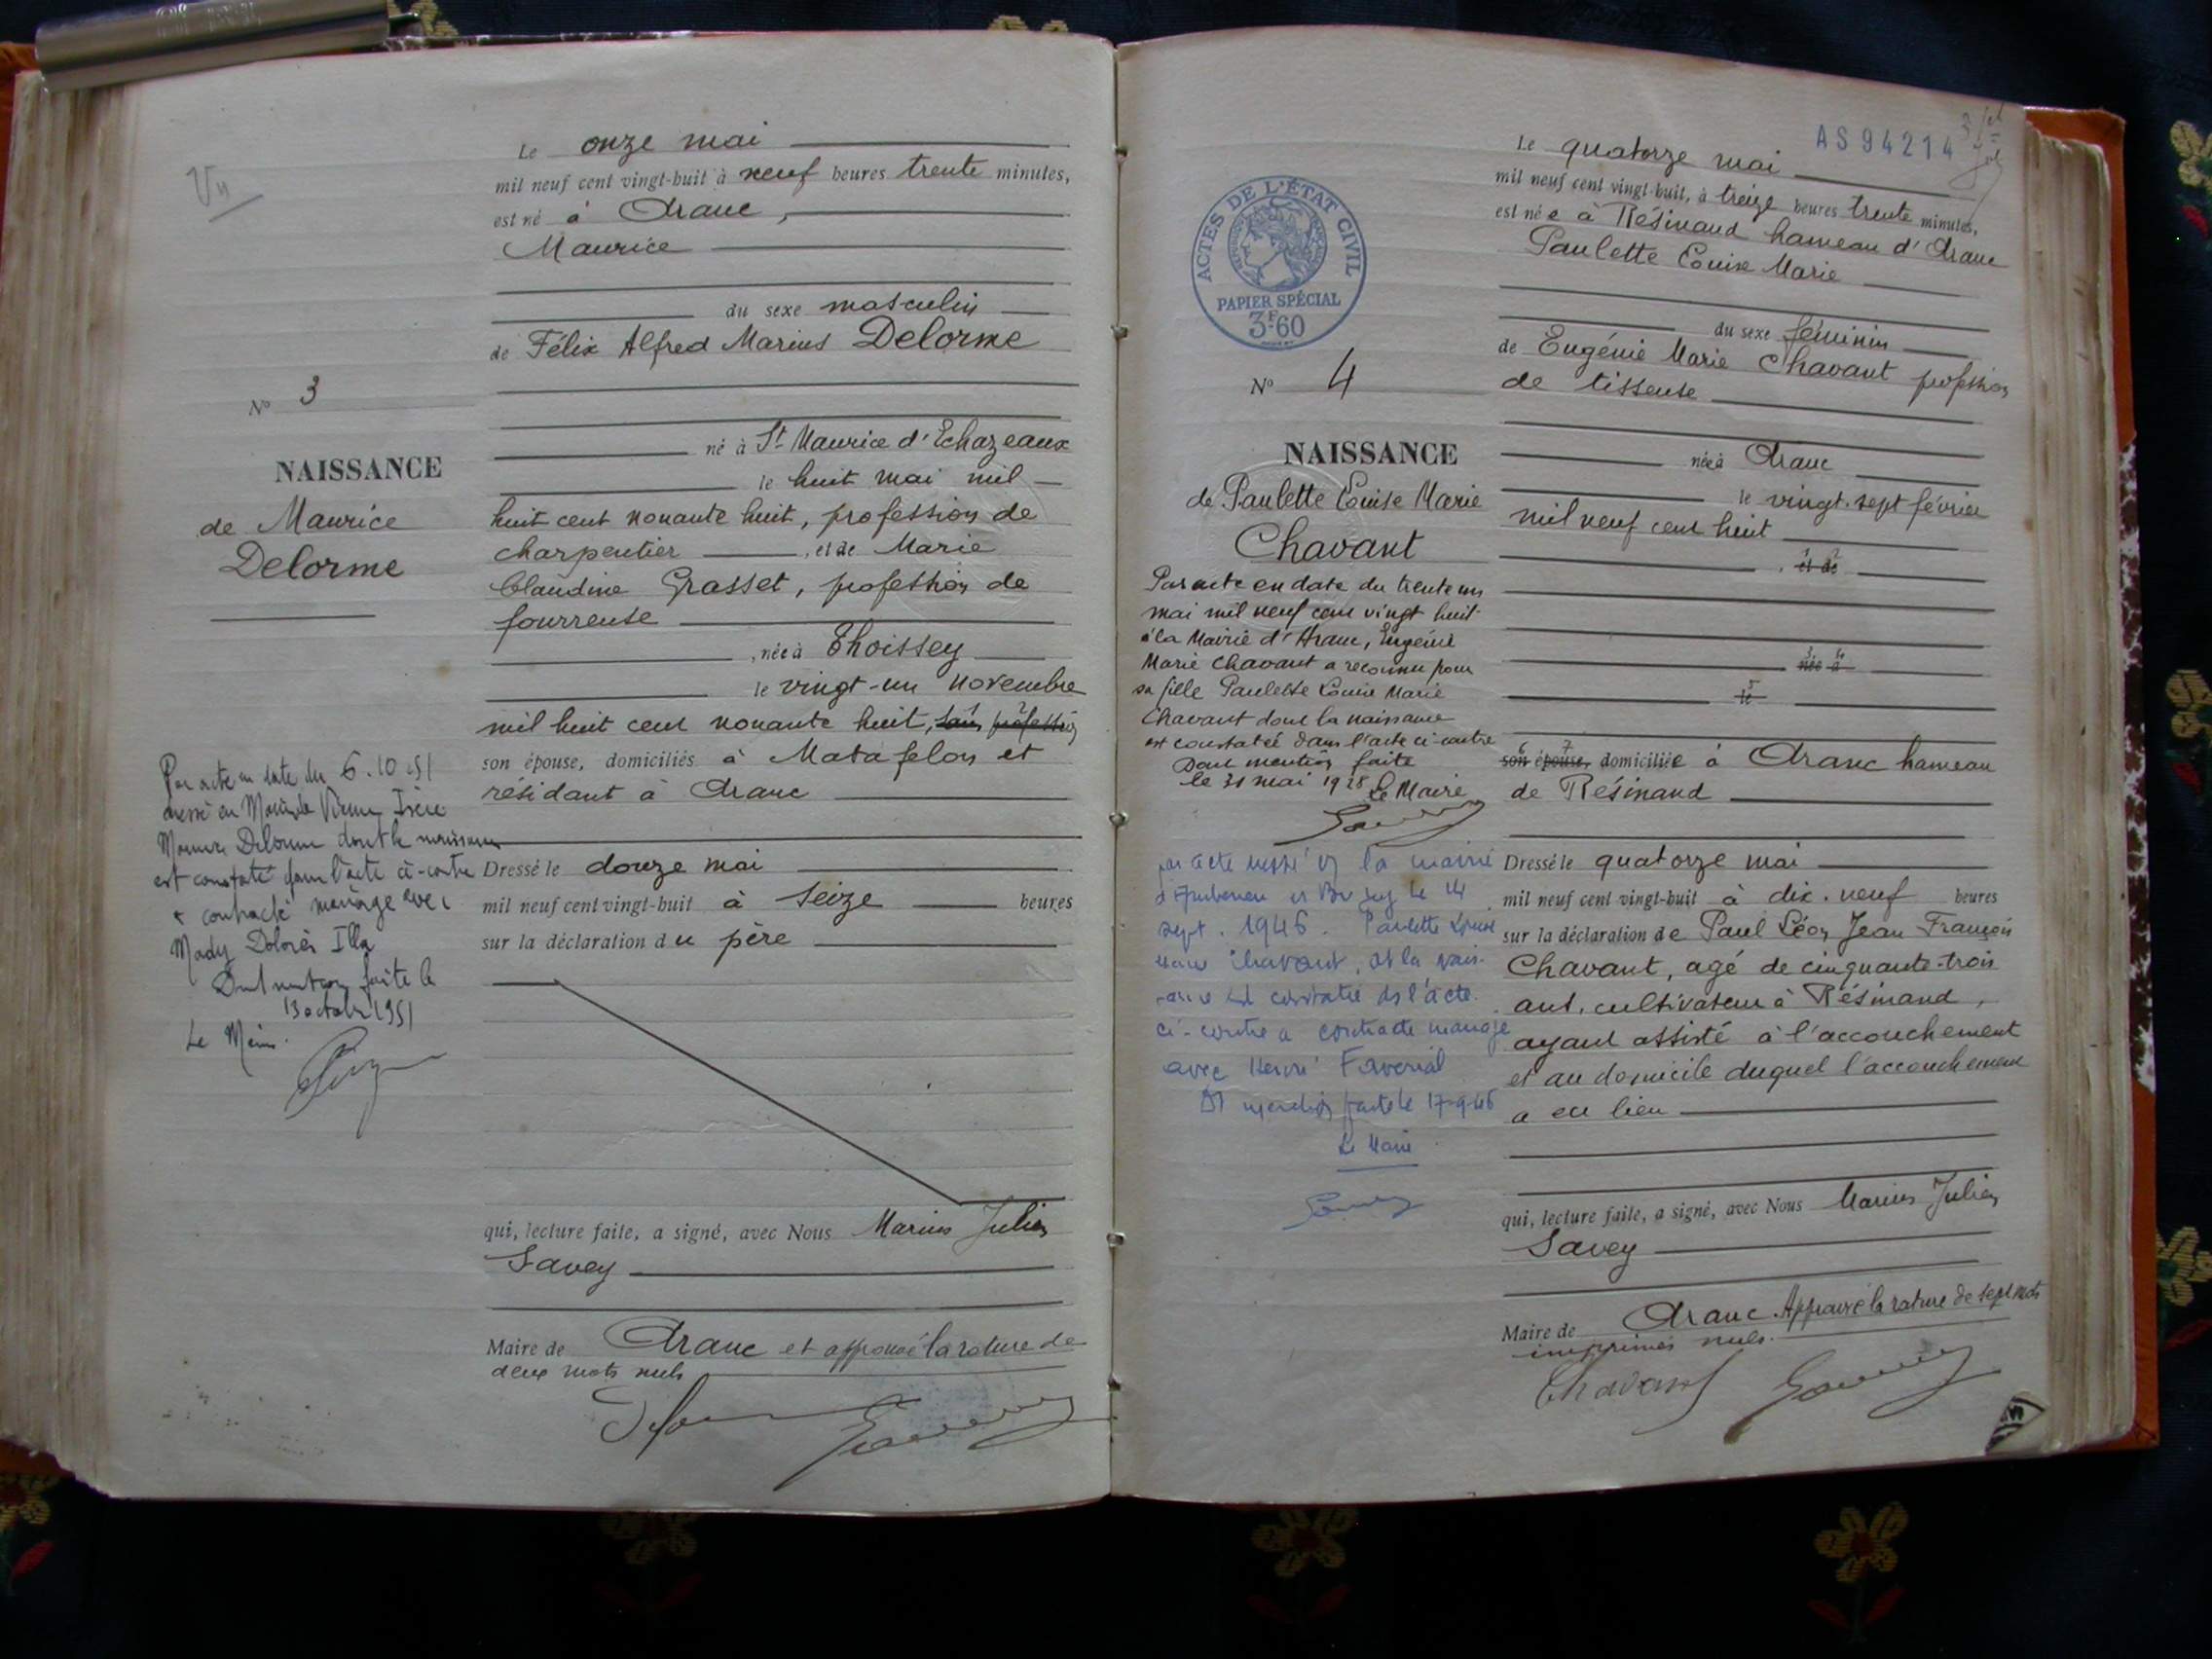 Vu
N° 3
NAISSANCE
de Maurice
Delorme
Par acte en date du 6.10.51
dressé en Mairie de Vienne Isère
Maurice Delorme dont la naissance
est constatée dans l'acte ci-contre
a contracté mariage avec
Mady Dolorès Illa
Dont mention faite le
13 octobre 1951
Le Maire.
Le onze mai
mil neuf cent vingt-huit à neuf heures trente minutes,
est né à Aranc,
Maurice
du sexe masculin
de Félix Alfred Marius Delorme
né à St Maurice d'Echazeaux
le huit mai mil
huit cent nonante huit, profession de
charpentier, et de Marie
Claudine Grasset, profession de
fourreuse
, née à Thoissey
le vingt-un novembre
mil huit cent nonante huit, sans profession
son épouse, domiciliés à Matafelon et
résidant à Aranc
Dressé le douze mai
mil neuf cent vingt-huit à seize heures
sur la déclaration du père
qui, lecture faite, a signé, avec Nous Marius Julien
Savey
Maire de Aranc et approuvé la rature de
deux mots nuls
AS94214
ACTES DE L'ÉTAT CIVIL
PAPIER SPÉCIAL
3F.60
N° 4
NAISSANCE
de Paulette Louise Marie
Chavant
Par acte en date du trente un
mai mil neuf cent vingt huit
à la Mairie d'Aranc, Eugénie
Marie Chavant a reconnu pour
sa fille Paulette Louise Marie
Chavant dont la naissance
est constatée dans l'acte ci-contre
Dont mention faite
le 31 mai 1928 Le Maire
par acte dressé en la mairie
d'Ambérieu en Bugey le 14
sept. 1946. Paulette Louise
Marie Chavant, dt la nais-
sance est constatée ds l'acte
ci-contre a contracté mariage
avec Henri Faverial
Dt mention faite le 17-9-46
Le Maire
Le quatorze mai
mil neuf cent vingt-huit, à treize heures trente minutes,
est née à Résinand hameau d'Aranc
Paulette Louise Marie
du sexe féminin
de Eugénie Marie Chavant profession
de tisseuse
née à Aranc
le vingt-sept février
mil neuf cent huit
1 2
, et de
3 4
née à
5
le
6 7
son épouse, domiciliée à Aranc hameau
de Résinand
Dressé le quatorze mai
mil neuf cent vingt-huit à dix-neuf heures
sur la déclaration de Paul Léon Jean François
Chavant, agé de cinquante-trois
ans, cultivateur à Résinand,
ayant assisté à l'accouchement
et au domicile duquel l'accouchement
a eu lieu
qui, lecture faite, a signé, avec Nous Marius Julien
Savey
Maire de Aranc. Approuvé la rature de sept mots
imprimés nuls.
Chavant